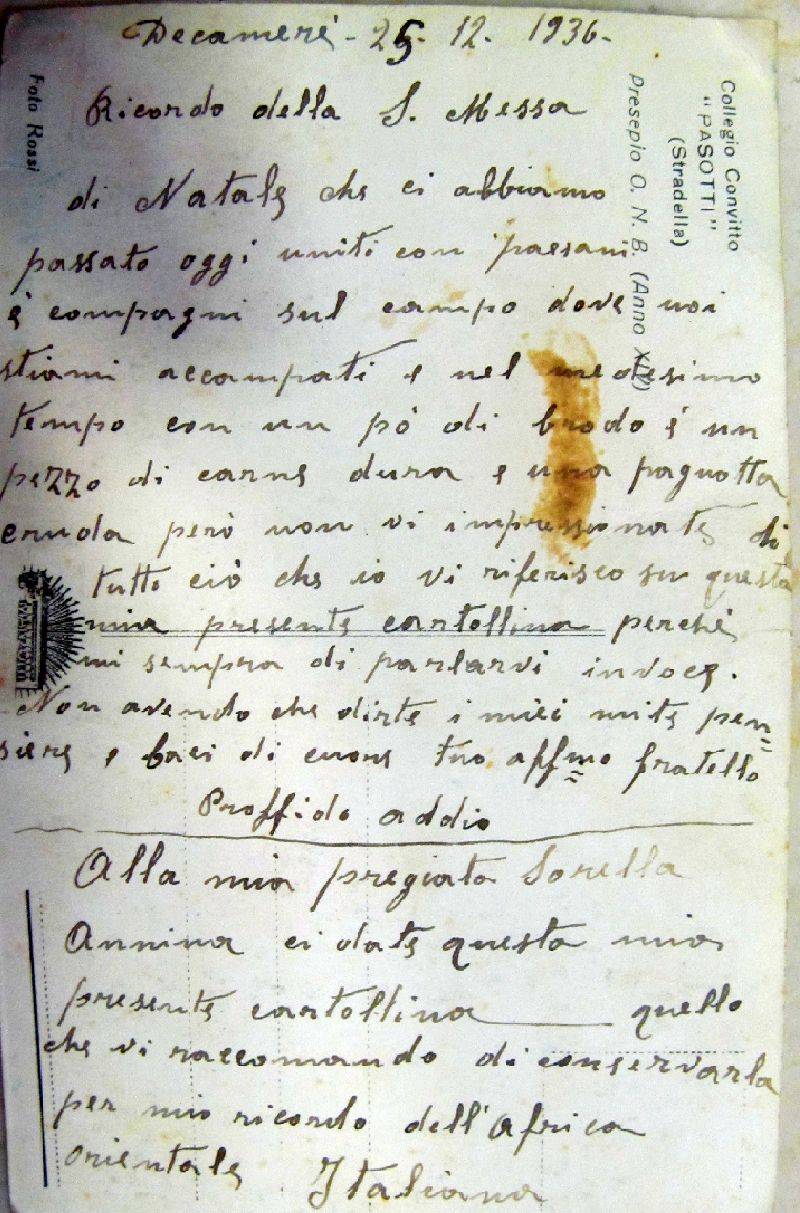 Decamerè - 25. 12. 1936.
Ricordo della S. Messa
di Natale che ci abbiamo
passato oggi uniti con paesani
è compagni sul campo dove noi
stiami accampati e nel medesimo
tempo con un pò di brodo è un
pezzo di carne dura e una pagnotta
cruda però non vi impressionate di
tutto ciò che io vi riferisco su questa
mia presente cartollina perchè
mi sempra di parlarvi invoce.
Non avendo che dirte i miei mite pen=
siere e baci di cuore tuo affmo fratello
Proffido addio
Alla mia pregiata Sorella
Annina ci date questa mia
presente cartollina quello
che vi raccomando di conservarla
per mio ricordo dell'Africa
orientale Italiana
Foto Rossi
Collegio Convitto
"PASOTTI"
(Stradella)
Presepio O. N. B. (Anno XIV)